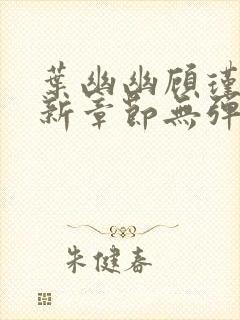 葉幽幽顾瑾
新章節無彈
朱健春